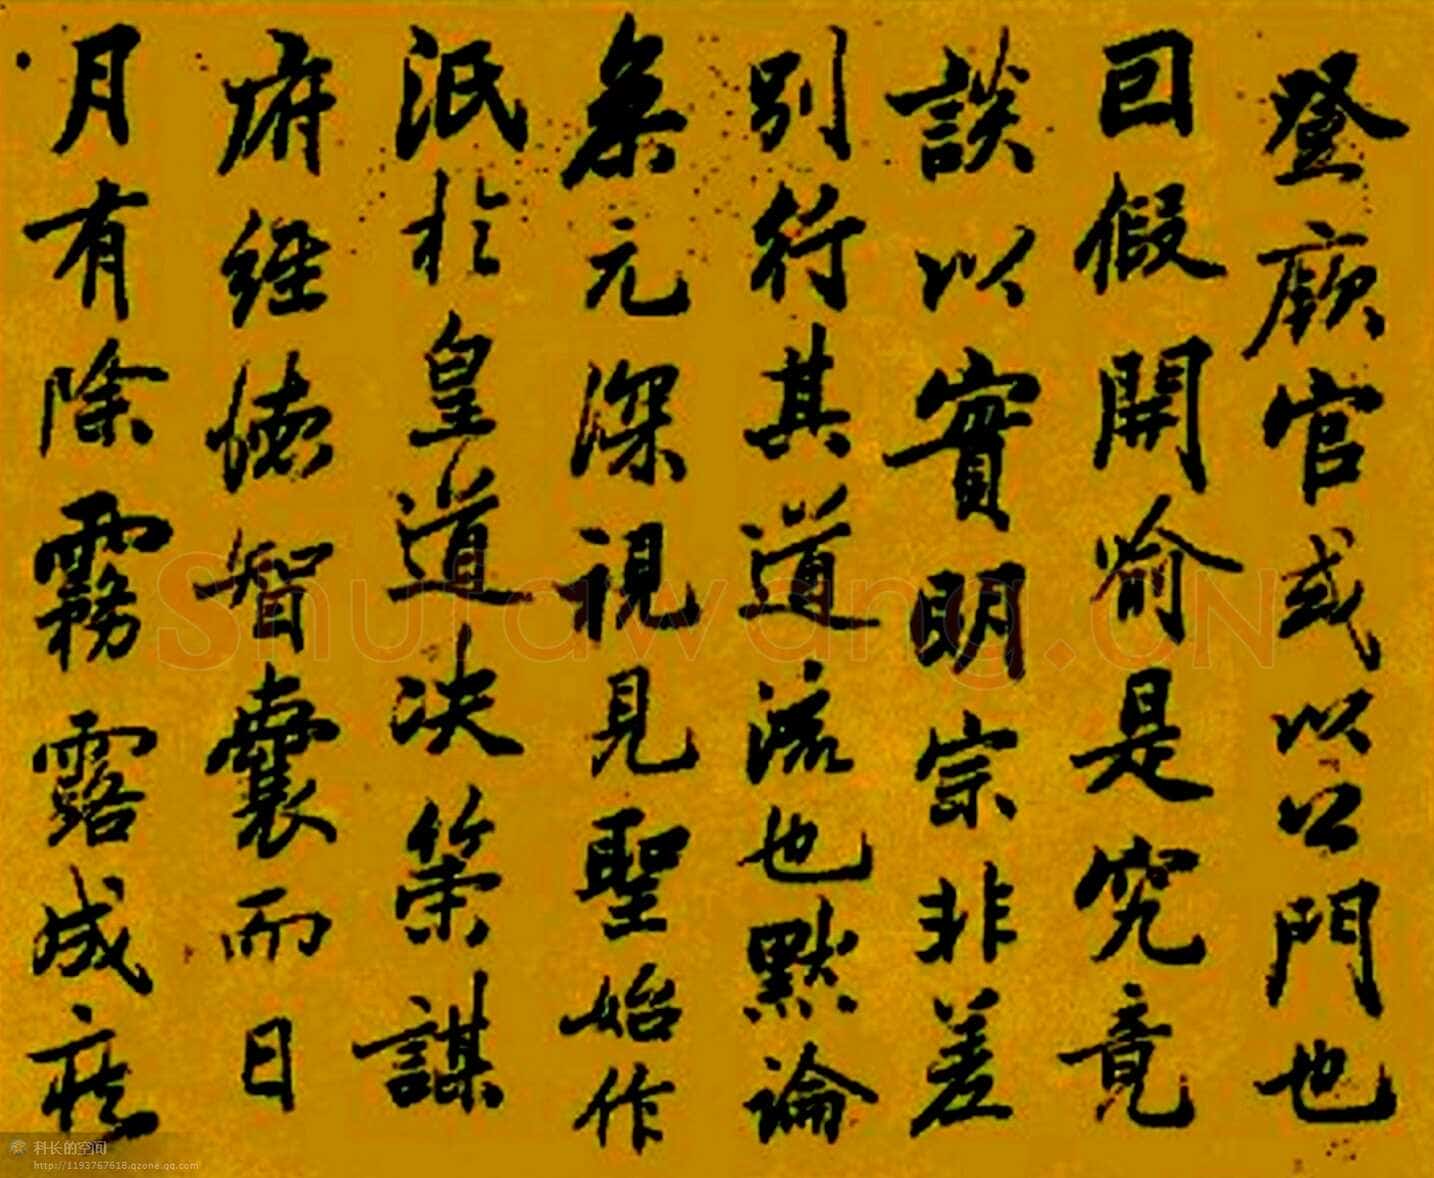 登顾官或以公門也
回假開喻是究竟
談以實明宗非差
別行其道流也默論
系元深視見聖始作
泯於皇道決策謀
府經德智囊而日
月有除霧露成疾
Shufawang.CN
科长的空间
http://1193767618.qzone.qq.com